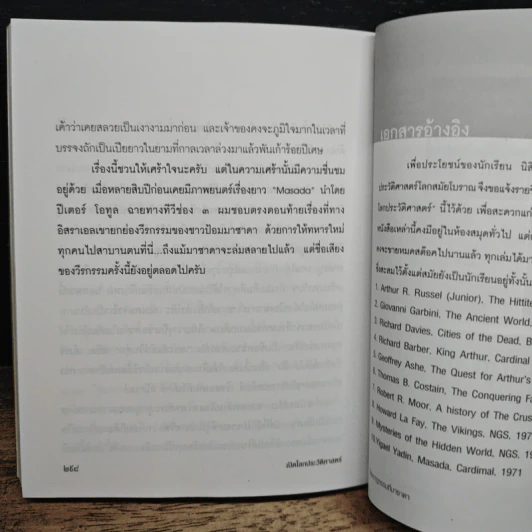 เค้าว่าเคยสลวยเป็นเงางามมาก่อน และเจ้าของคงจะภูมิใจมากในเวลาที่
บรรจงถักเป็นเปียยาวในยามที่กาลเวลาล่วงมาแล้วพันเก้าร้อยปีเศษ
เรื่องนี้ชวนให้เศร้าใจนะครับ แต่ในความเศร้านั้นมีความชื่นชม
อยู่ด้วย เมื่อหลายสิบปีก่อนเคยมีภาพยนตร์เรื่องยาว "Masada" นำโดย
ปีเตอร์ โอทูล ฉายทางทีวีช่อง ๓ ผมชอบตรงตอนท้ายเรื่องที่ทาง
อิสราเอลเขายกย่องวีรกรรมของชาวป้อมมาซาดา ด้วยการให้ทหารใหม่
ทุกคนไปสาบานตนที่นี่...ถึงแม้มาซาดาจะล่มสลายไปแล้ว แต่ชื่อเสียง
ของวีรกรรมครั้งนี้ยังอยู่ตลอดไปครับ
๒๕๘
เปิดโลกประวัติศาสตร์
เอกสารอ้างอิง
เพื่อประโยชน์ของนักเรียน นิสิ
ประวัติศาสตร์โลกสมัยโบราณ จึงขอแจ้งราย
โลกประวัติศาสตร์" นี้ไว้ด้วย เพื่อสะดวกแก่
หนังสือเหล่านี้คงมีอยู่ในห้องสมุดทั่วไป แต่
คงจะขายหมดสต็อคไปนานแล้ว ทุกเล่มได้มา
ซึ่งสะสมไว้ตั้งแต่สมัยยังเป็นนักเรียนอยู่ทั้งนั้น
1. Arthur R. Russel (Junior), The Hittite
2. Giovanni Garbini, The Ancient World,
3. Richard Davies, Cities of the Dead, B
4. Richard Barber, King Arthur, Cardinal
5. Geoffrey Ashe, The Quest for Arthur's
6. Thomas B. Costain, The Conquering Fa
7. Robert R. Moor, A history of The Crus
8. Howard La Fay, The Vikings, NGS, 197
9. Mysteries of the Hidden World, NGS, 19
10. Yigael Yadin, Masada, Cardimal, 1971